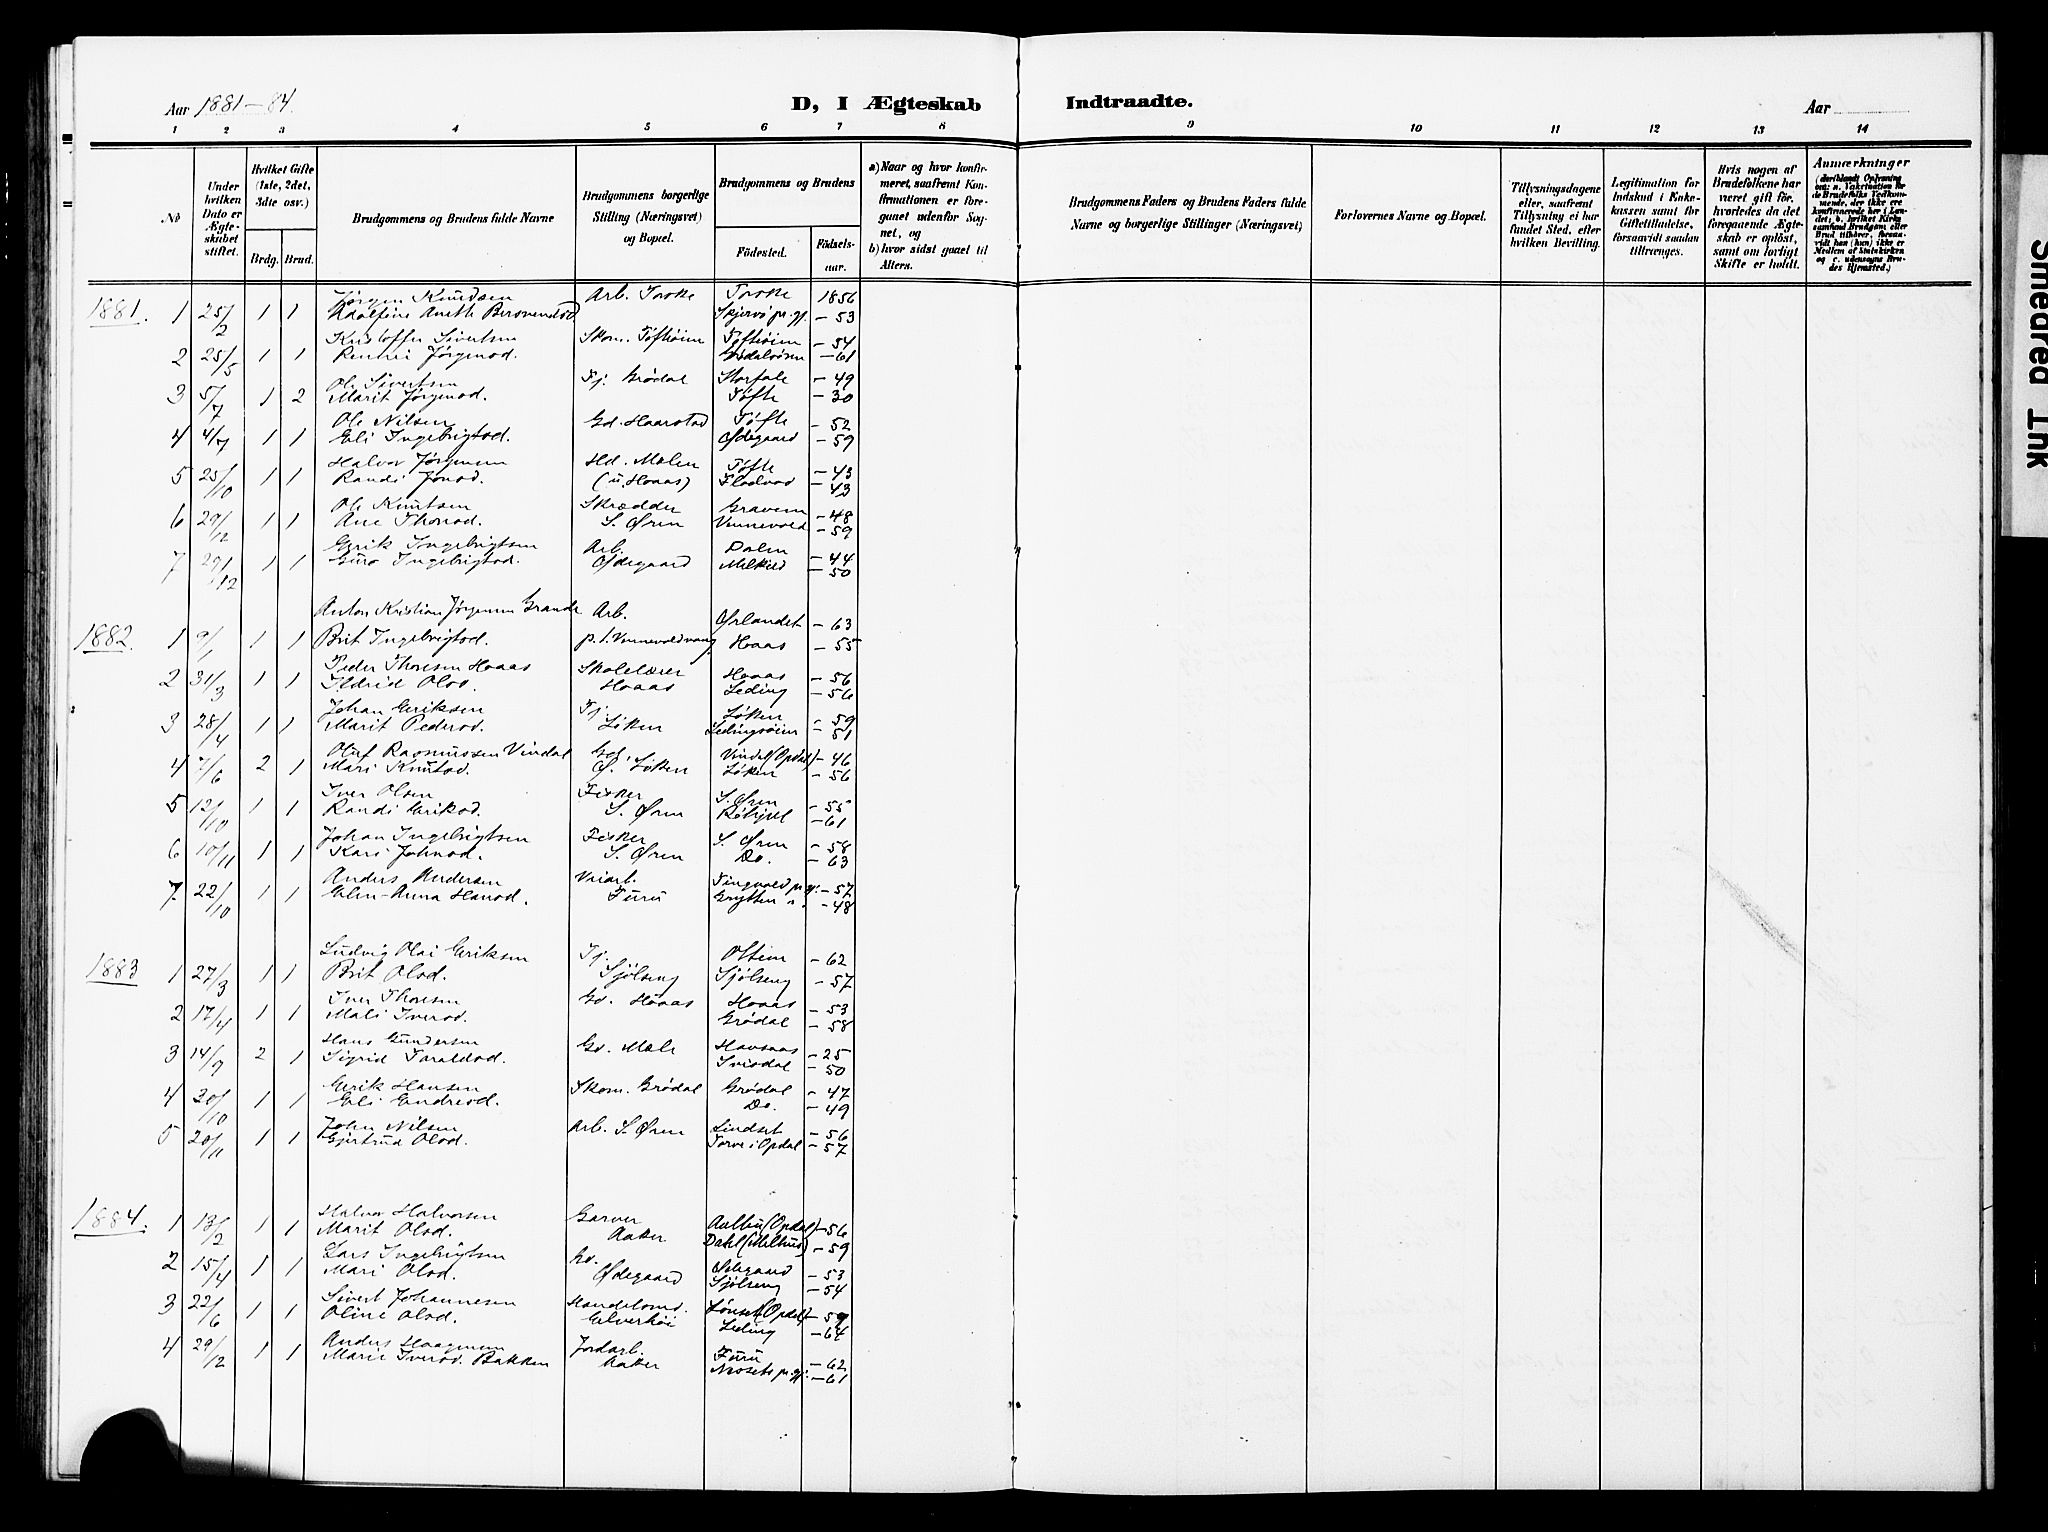 Aar 1881-84.
D, I Ægteskab Indtraadte.
Aar
1 2 3 4 5 6 7 8 9 10 11 12 13 14
No
Under hvilken Dato er Ægteskabet stiftet.
Hvilket Gifte (1ste, 2det, 3die osv.)
Brdg. Brud.
Brudgommens og Brudens fulde Navne
Brudgommens borgerlige Stilling (Næringsvei) og Bopæl.
Brudgommens og Brudens
Fødested. Fødselsaar.
a) Naar og hvor konfirmeret, saafremt Konfirmationen er foregaaet udenfor Sognet, og
b) hvor sidst gaaet til Alters.
Brudgommens Faders og Brudens Faders fulde Navne og borgerlige Stillinger (Næringsvei)
Forlovernes Navne og Bopæl.
Tillysningsdagene eller, saafremt Tillysning ei har fundet Sted, efter hvilken Bevilling.
Legitimation for Indskud i Enkekassen samt for Giftetilladelse, forsaavidt saadan tiltrænges.
Hvis nogen af Brudefolkene har været gift før, hvorledes da det foregaaende Ægteskab er opløst, samt om lovligt Skifte er holdt.
Anmærkninger
1881. 1 25/2 1 1 Jørgen Knudsen Arb. Torske Torske 1856
Adolfine Aneth Skjervø pr.gj. - 53
2 25/5 1 1 Kristoffer Sivertsen Skom. Toftøien Toftøien - 54
Jørgensd. - 61
3 5/7 1 2 Ole Sivertsen Fj. Grødal Storfale - 49
Marit Jørgensd. Tøfte - 30
4 4/7 1 1 Ole Nilsen Gd. Haarstad Tøfte - 52
Eli Ingebrigtsd. Ødegaard - 59
5 25/10 1 1 Halvor Jørgensen Hd. Mælen Tøfte - 43
Randi Jonsd. (u. Hoaas) Flodvad - 43
6 29/12 1 1 Ole Knutsen Skrædder Gravem - 48
Ane Thorsd. S. Øren Vennevold - 59
7 29/12 1 1 Eerik Ingebrigtsen Arb. Dalen - 44
Guro Ingebrigtsd. Ødegaard Melkild - 50
1882. 1 9/1 1 1 Anton Kristian Jørgensen Grande Arb. Ørlandet - 63
Brit Ingebrigtsd. Hoaas - 55
2 31/3 1 1 Peder Thoresen Hoaas Skolelærer Hoaas - 56
Ildrid Olsd. Hoaas Leding - 56
3 28/4 1 1 Johan Eriksen Fj. Løken - 59
Marit Pedersd. Løken Ledingsøien - 51
4 7/6 2 1 Oluf Rasmussen Vindal Gd. Vindal (Opdal) - 46
Mari Knutsd. Ø. Løken Løken - 56
5 12/10 1 1 Iver Olsen Fisker S. Øren - 55
Randi Eriksd. S. Øren - 61
6 10/11 1 1 Johan Ingebrigtsen Fisker S. Øren - 58
Kari Johnsd. S. Øren Do. - 63
7. 22/10 1 1 Anders Andersen Veiarb. Tingvold pr.gj. - 57
Elen-Anna Hansd. Furu Grytten " - 48
1883 1 27/3 1 1 Ludvig Olai Eriksen Fj. Oltem - 62
Brit Olsd. Sjølseng Sjølseng - 57
2 17/4 1 1 Iver Thoresen Gd. Hoaas Hoaas - 53
Mali Iversd. Grødal - 58
3 14/7 2 1 Hans Gundersen Gd. Mæle Havsaas - 25
Sigrid Taraldsd. Svisdal - 50
4 20/10 1 1 Eerik Hansen Skom. Grødal Grødal - 47
Eli Endresd. Do. - 49
5 20/11 1 1 John Nilsen Arb. S. Øren Lindset - 56
Gjertrud Olsd. Torve i Opdal - 57
1884. 1 13/2 1 1 Halvor Halvorsen Garver Aalbu (Opdal) - 56
Marit Olsd. Aaker Dahl (Melhus) - 59
2 15/4 1 1 Lars Ingebrigtsen Gd. Ødegaard - 53
Mari Olsd. Ødegaard Sjølseng - 54
3 22/6 1 1 Sivert Johannesen Handelsmd. Lønset (Opdal) - 59
Oline Olsd. Elverhøi Leding - 64
4 29/12 1 1 Anders Haagensen Jordarb. Furu - 62
Marie Iversd. Bakken Aaker Nesset pr.gj. - 61
Smeared Ink